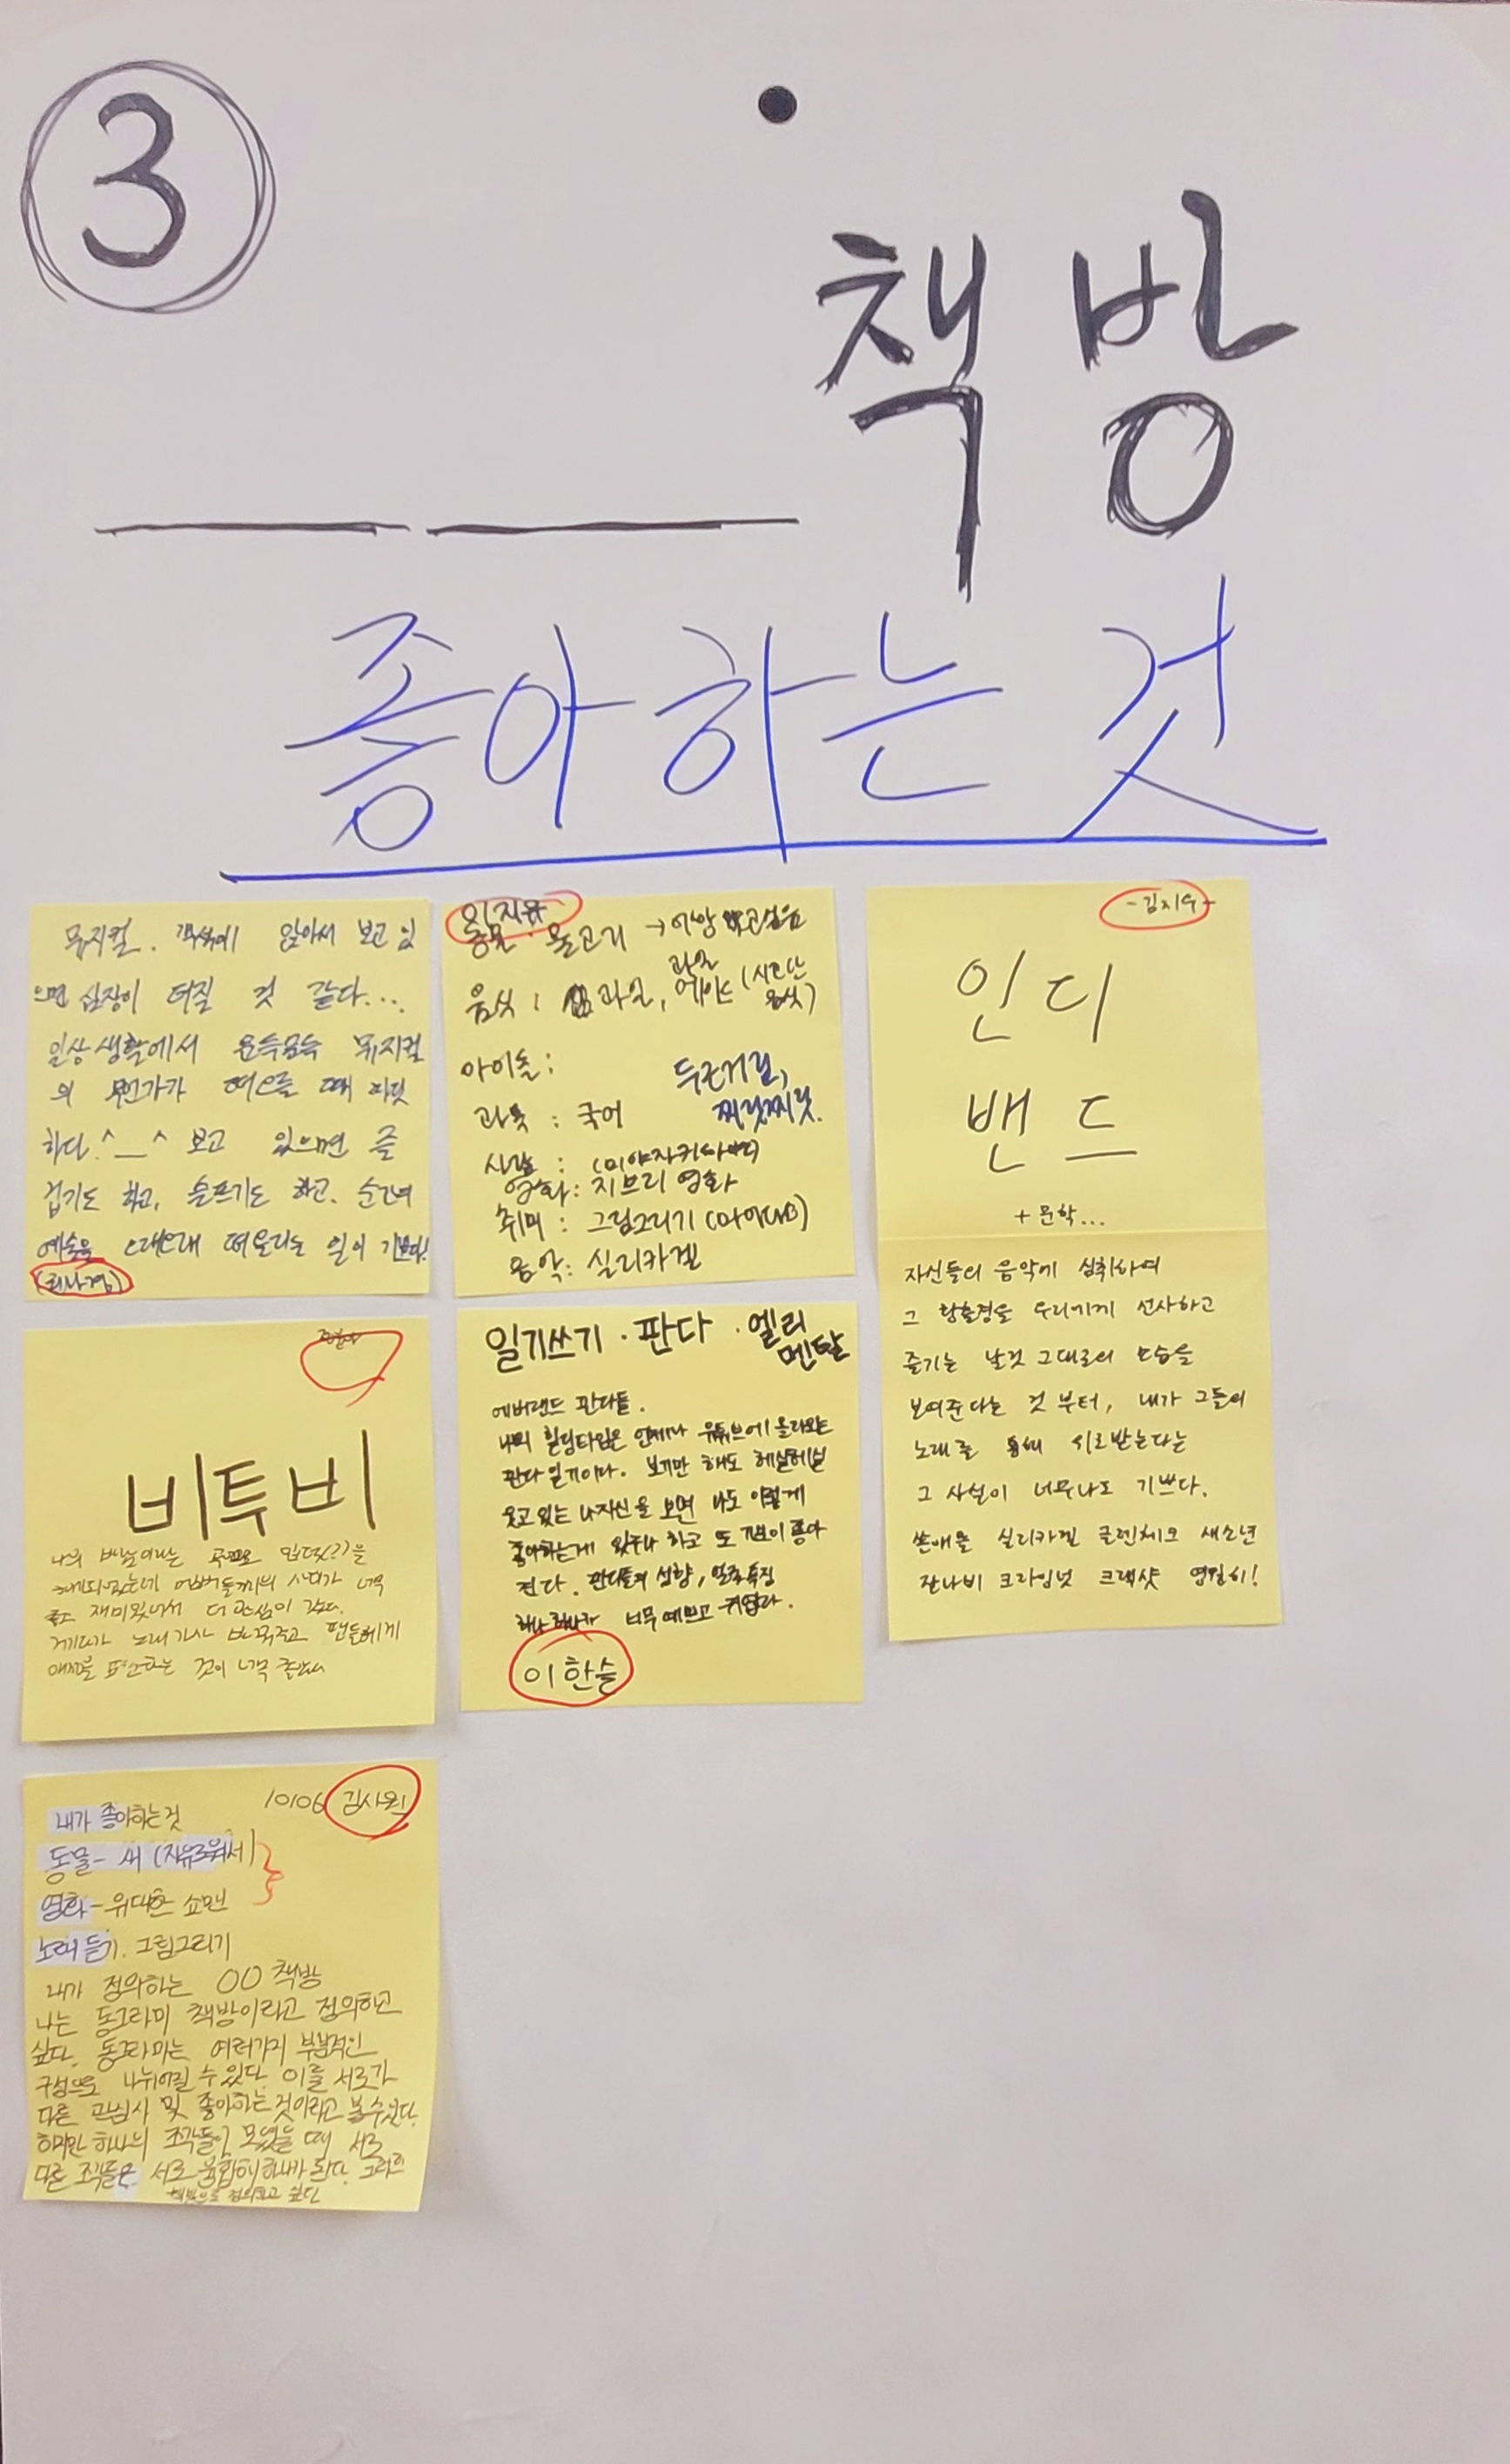 ③
책방
좋아하는 것
뮤지컬. 객석에 앉아서 보고 있
으면 심장이 터질 것 같다...
일상생활에서 문득문득 뮤지컬
의 무언가가 떠오를 때 짜릿
하다.^__^ 보고 있으면 즐
겁기도 하고, 슬프기도 하고. 순간의
예술을 오래오래 떠올리는 일이 기쁘다!
동물 · 물고기 →
음식 : 과일,
과일
음식)
아이돌:
두근거림,
찌릿찌릿.
과목 : 국어
사람 :
영화: 지브리 영화
취미 : 그림그리기
음악: 실리카겔
-김지우-
인디
밴드
+ 문학...
자신들의 음악에 심취하여
그 황홀경을 우리에게 선사하고
즐기는 날것 그대로의 모습을
보여준다는 것 부터, 내가 그들의
노래를 통해 위로받는다는
그 사실이 너무나도 기쁘다.
쏜애플 실리카겔 글렌체크 새소년
잔나비 크라잉넛 크랙샷 영원히!
비투비
재미있어서 더 관심이 갔다.
게다가 노래가사 팬들에게
표현하는 것이 너무
일기쓰기 · 판다 · 엘리
멘탈
에버랜드 판다들.
나의 힐링타임은 언제나 유튜브에 올라오는
판다 일기이다. 보기만 해도 헤실헤실
웃고 있는 나자신을 보면 나도 이렇게
좋아하는게 있구나 하고 또 기분이 좋아
진다. 판다들의 성향, 일주특징
하나하나가 너무 예쁘고 귀엽다.
이한슬
10106 김사원
내가 좋아하는것
동물- 새 (자유로워서)
영화- 위대한 쇼맨
노래 듣기. 그림그리기
내가 정의하는 OO 책방
나는 동그라미 책방이라고 정의하고
싶다. 동그라미는 여러가지 부분적인
구성으로 나뉘어질 수 있다 이를 서로가
다른 관심사 및 좋아하는 것이라고 볼수있다.
하지만 하나의 조각들이 모였을 때 서로
다른 조각들은 서로 하나가 된다. 그러므로
책방으로 정의하고 싶다